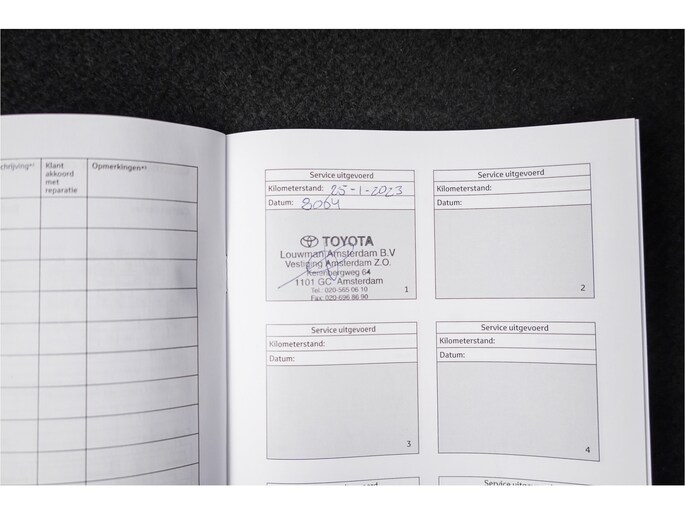 chrijving*¹
Klant
akkoord
met
reparatie
Opmerkingen*¹
Service uitgevoerd
Kilometerstand: 25-1-2023
Datum: 8064
TOYOTA
Louwman Amsterdam B.V
Vestiging Amsterdam Z.O.
Keienbergweg 64
1101 GC Amsterdam
Tel: 020-565 06 10
Fax: 020-696 86 90
1
Service uitgevoerd
Kilometerstand:
Datum:
2
Service uitgevoerd
Kilometerstand:
Datum:
3
Service uitgevoerd
Kilometerstand:
Datum:
4